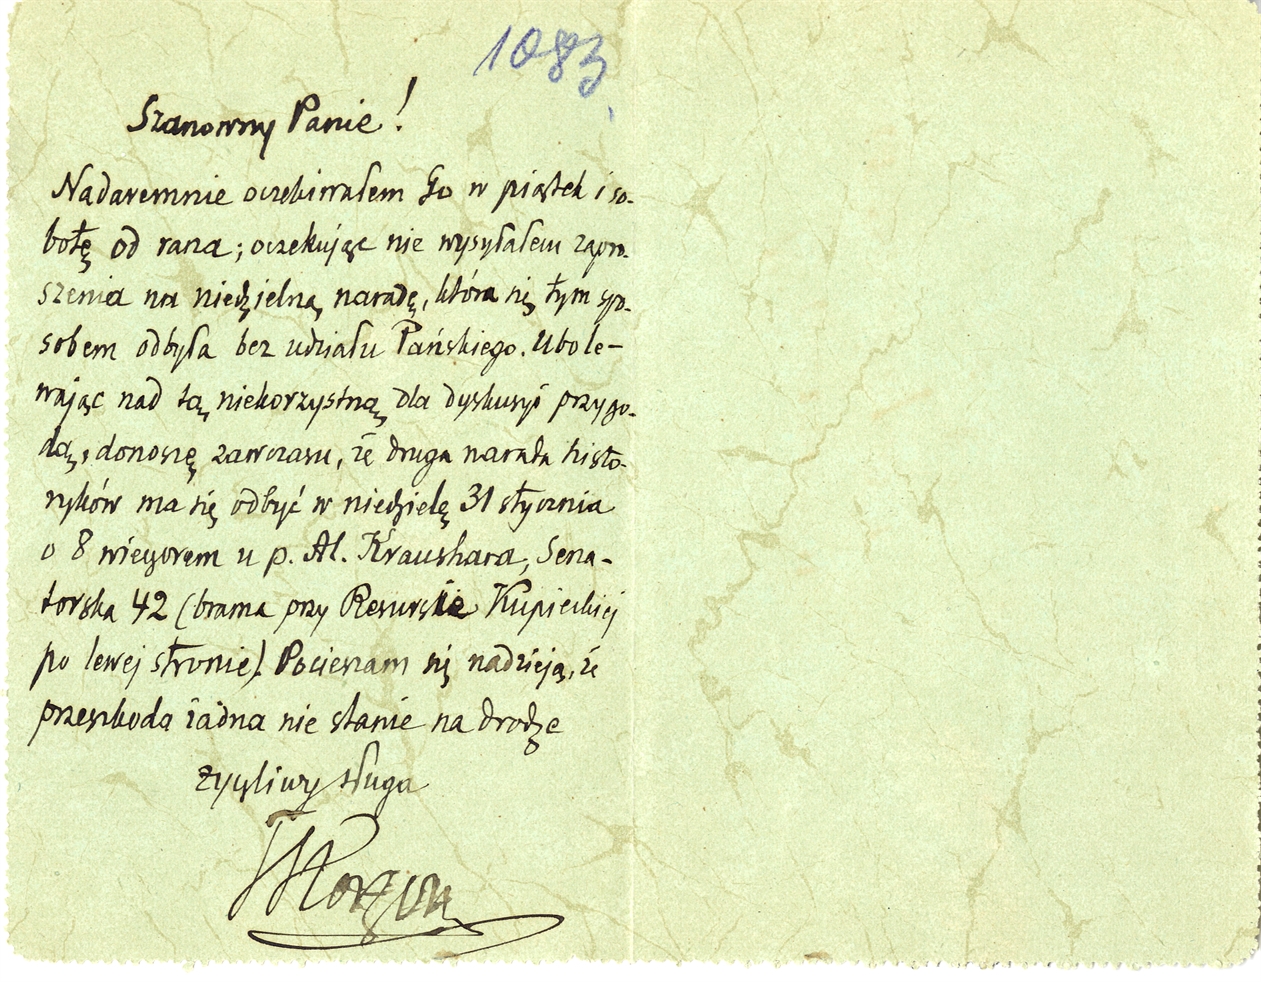 1083
Szanowny Panie!
Nadaremnie oczekiwałem Go w piątek i so-
botę od rana; oczekując nie wysyłałem zapro-
szenia na niedzielną naradę, która się tym spo-
sobem odbyła bez udziału Pańskiego. Ubole-
wając nad tą niekorzystną dla dyskusyi przygo-
dą, donoszę zawczasu, że druga narada histo-
ryków ma się odbyć w niedzielę 31 stycznia
o 8 wieczorem u p. Al. Kraushara, Sena-
torska 42 (brama przy Resursie Kupieckiej
po lewej stronie). Pocieszam się nadzieją, że
przeszkoda żadna nie stanie na drodze
życzliwy sługa
TKorzon